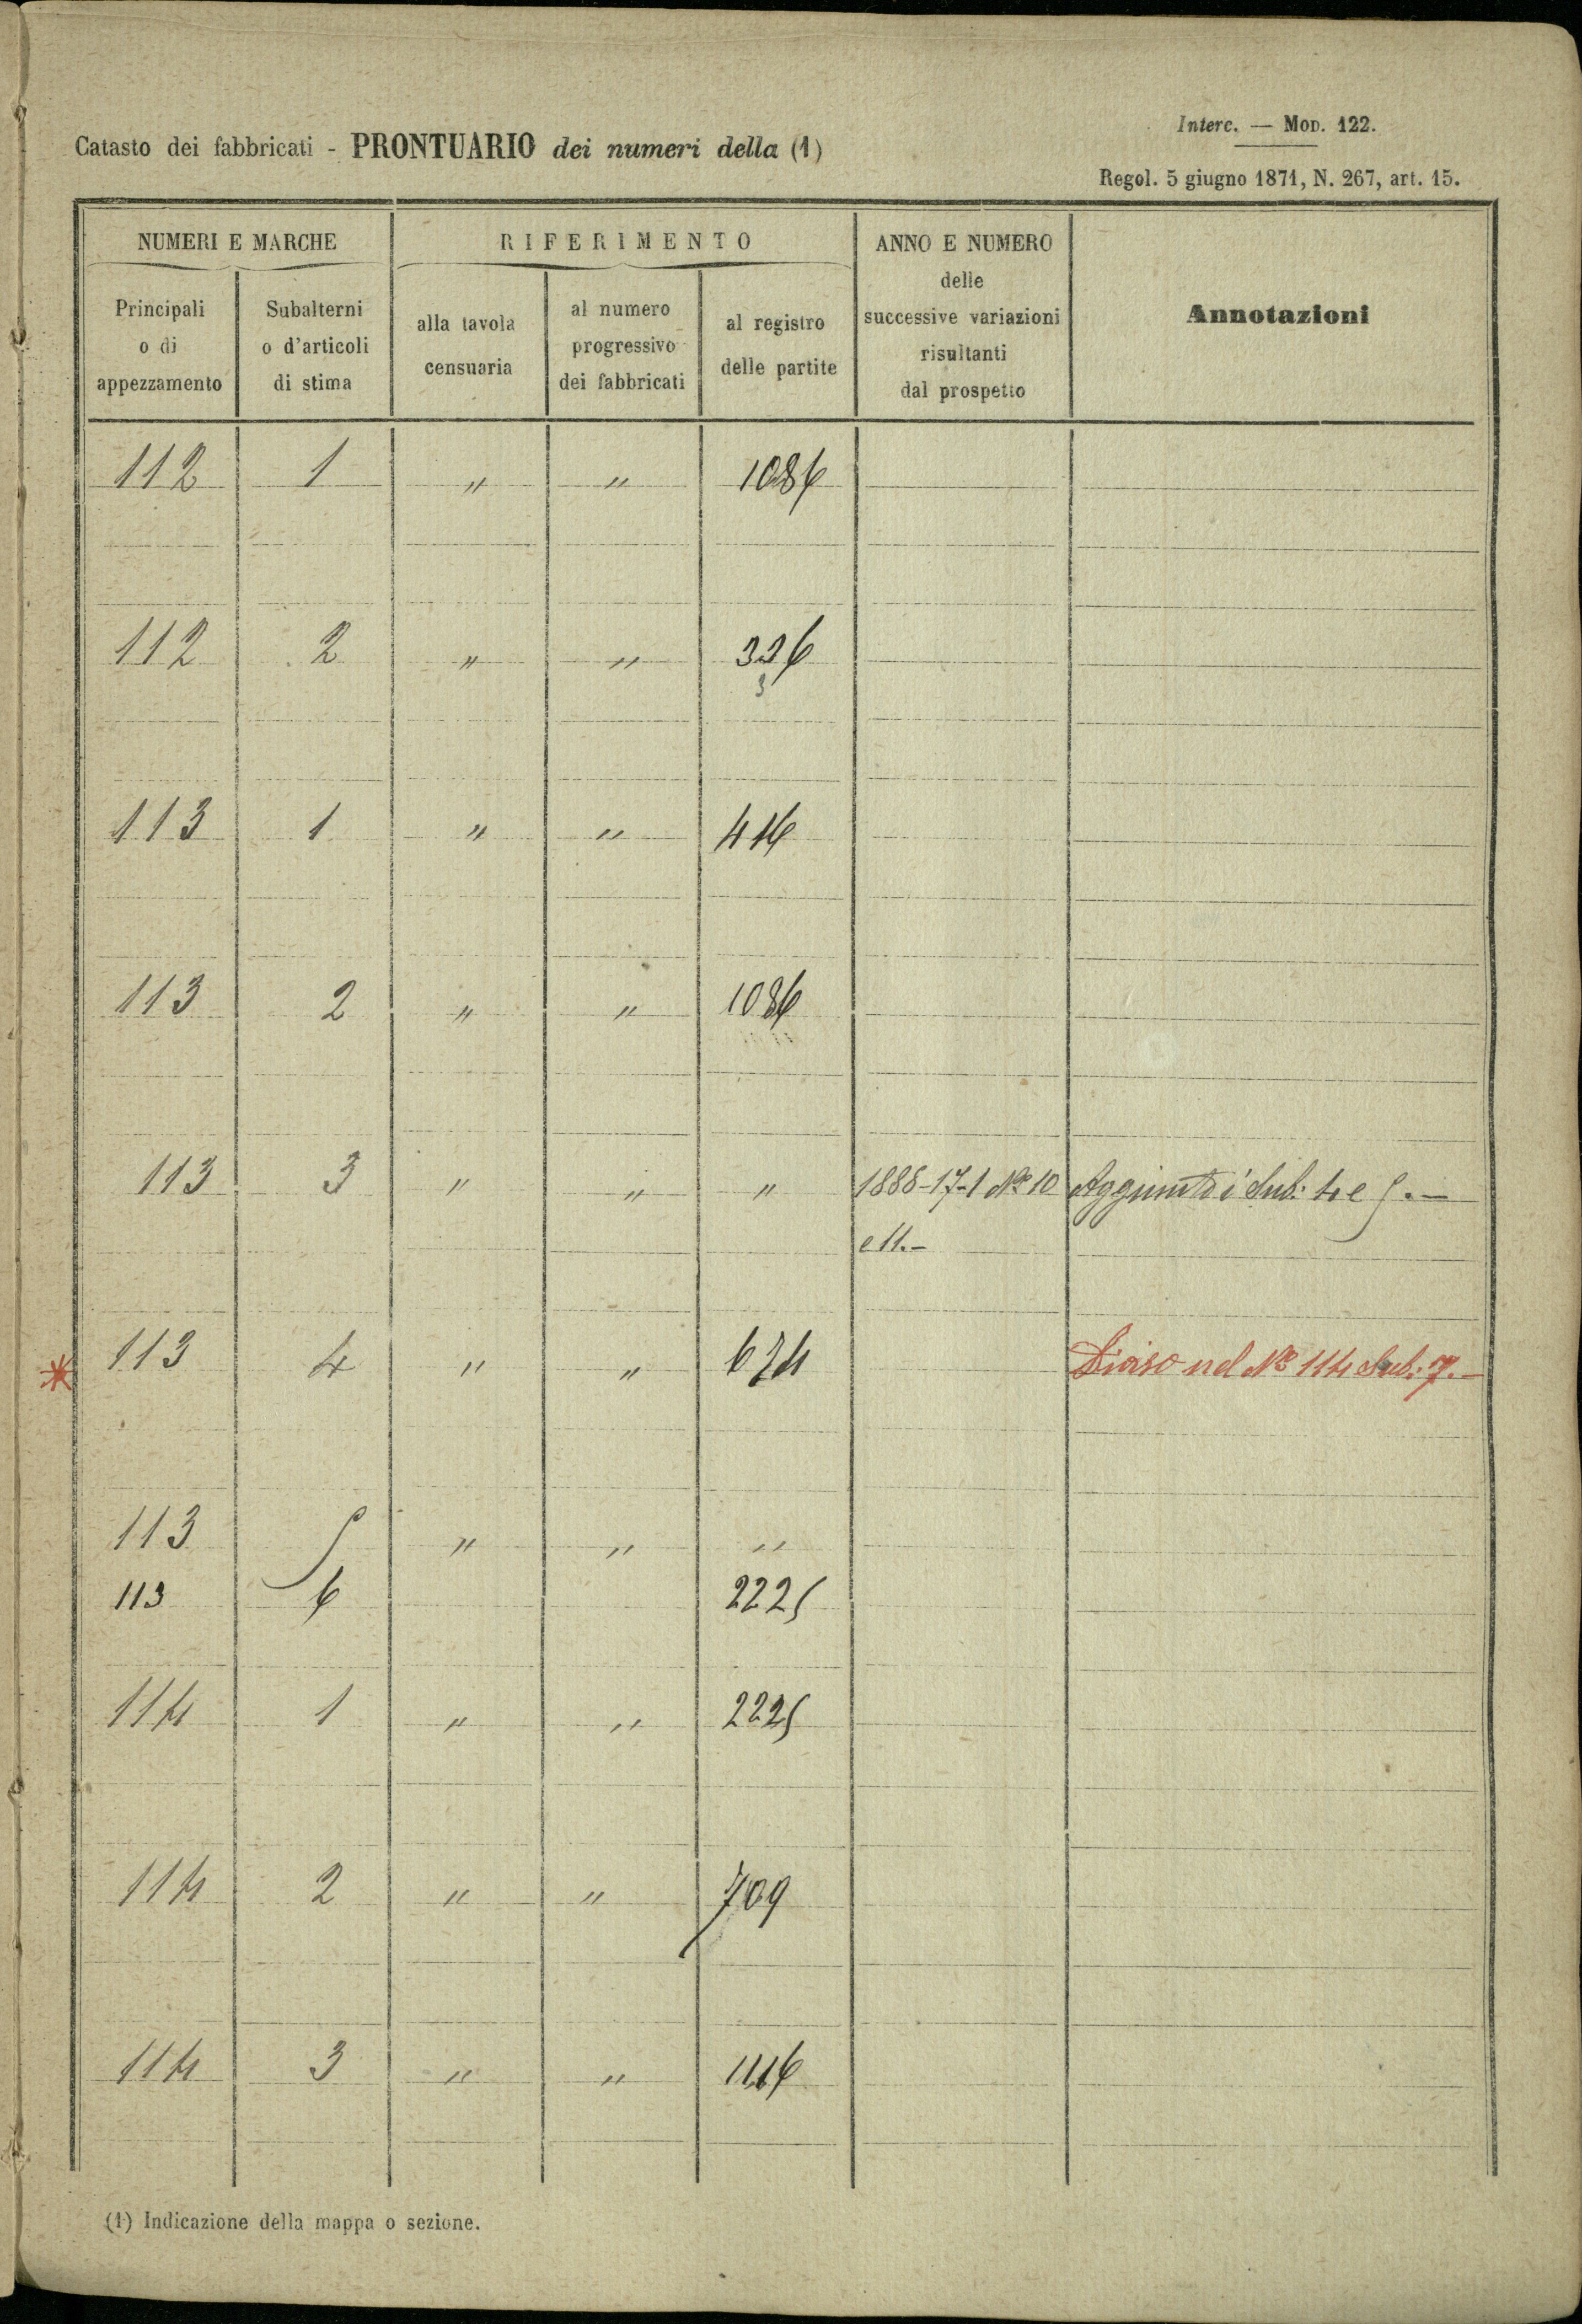 Interc. — Mod. 122.
Catasto dei fabbricati - PRONTUARIO dei numeri della (1)
Regol. 5 giugno 1871, N. 267, art. 15.
NUMERI E MARCHE
RIFERIMENTO
ANNO E NUMERO
delle
successive variazioni
risultanti
dal prospetto
Annotazioni
Principali
o di
appezzamento
Subalterni
o d'articoli
di stima
alla tavola
censuaria
al numero
progressivo
dei fabbricati
al registro
delle partite
112 1 " " 1086
112 2 " " 336
3
113 1 " " 416
113 2 " " 1086
113 3 " " " 1888-17-1 No 10 Aggiunto i Sub: 4 e 5.—
e 11.—
* 113 4 " " 674 Diviso nel No 114 Sub: 7.—
113 5 " " "
113 6 2225
114 1 " " 2225
114 2 " " 709
114 3 " " 1116
(1) Indicazione della mappa o sezione.